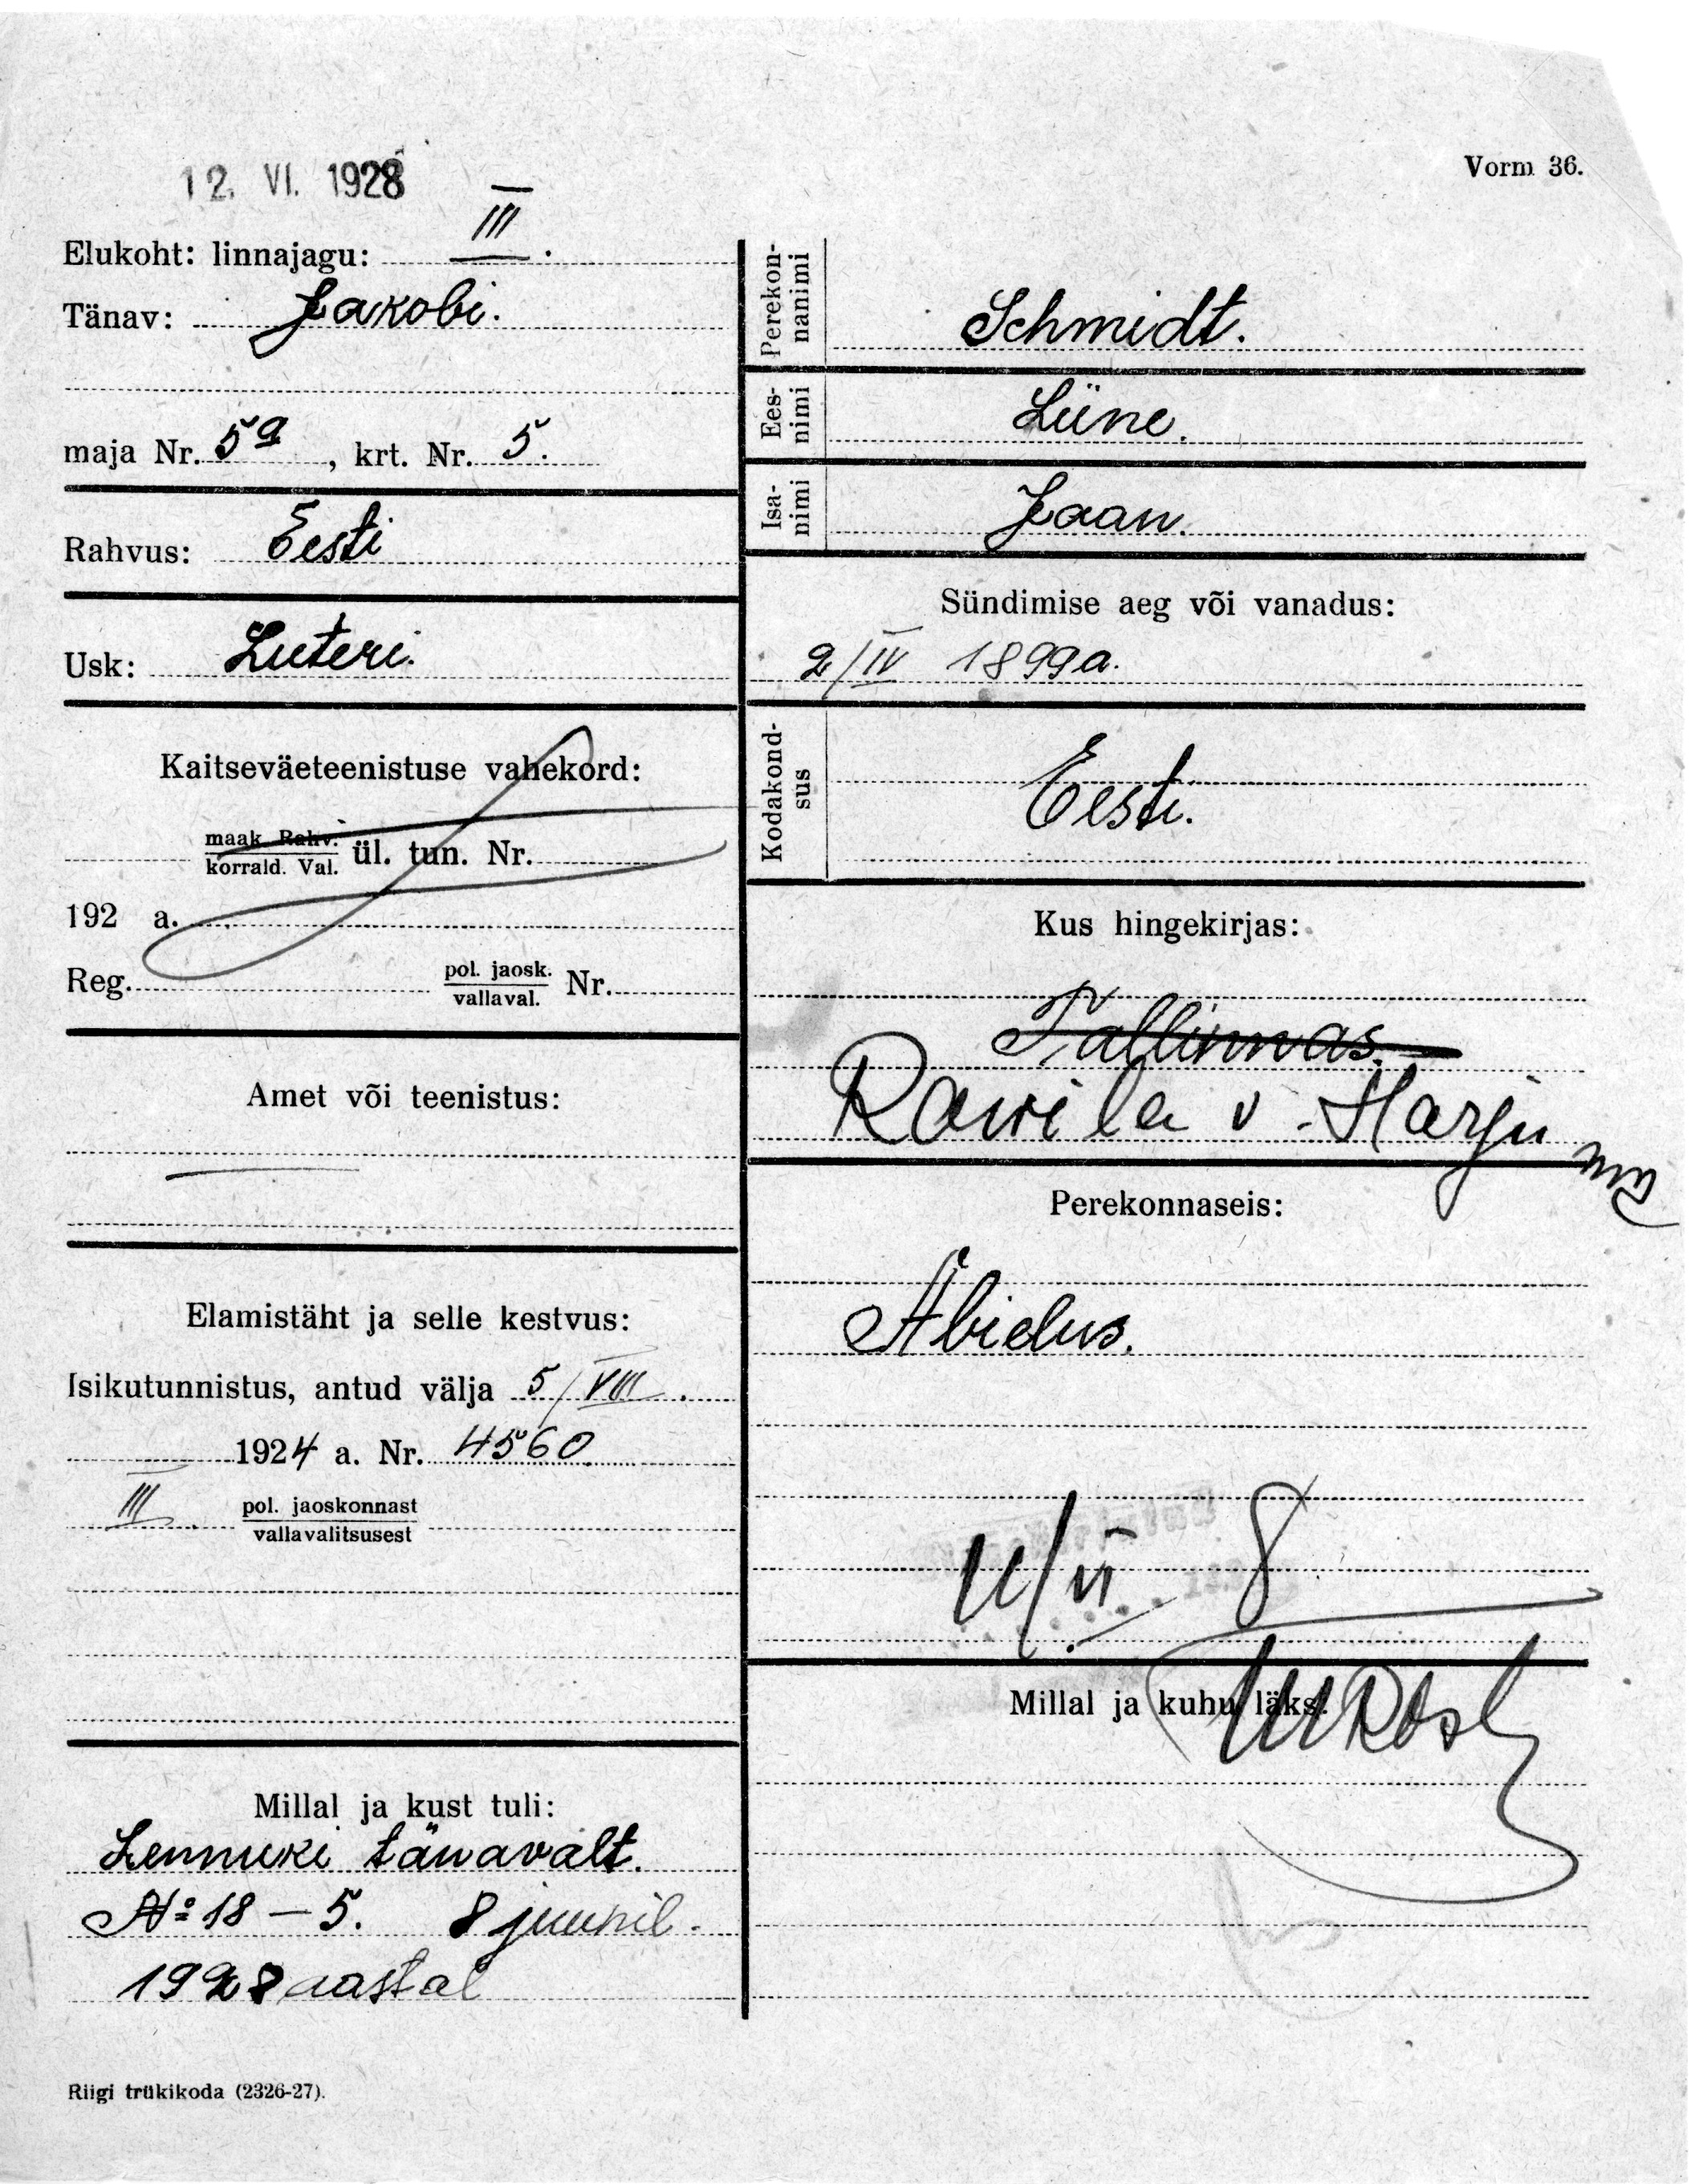 12. VI. 1928
Vorm 36.
Elukoht: linnajagu: III.
Tänav: Jakobi.
maja Nr. 5a, krt. Nr. 5.
Rahvus: Eesti
Usk: Luteri.
Kaitseväeteenistuse vahekord:
maak. Rahv.
korrald. Val. ül. tun. Nr.
192 a.
Reg. pol. jaosk.
vallaval. Nr.
Amet või teenistus:
Elamistäht ja selle kestvus:
Isikutunnistus, antud välja 5/VIII.
1924 a. Nr. 4560
III. pol. jaoskonnast
vallavalitsusest
Millal ja kust tuli:
Lennuki tänavalt.
№ 18 – 5. 8 juunil.
1928 aastal
Riigi trükikoda (2326-27).
Perekon-
nanimi
Schmidt.
Ees-
nimi
Liine.
Isa-
nimi
Jaan.
Sündimise aeg või vanadus:
2/IV 1899a.
Kodakond-
sus
Eesti.
Kus hingekirjas:
Tallinnas.
Rawila v. Harju
mk
Perekonnaseis:
Abielus.
11/VI 8
Millal ja kuhu läks: